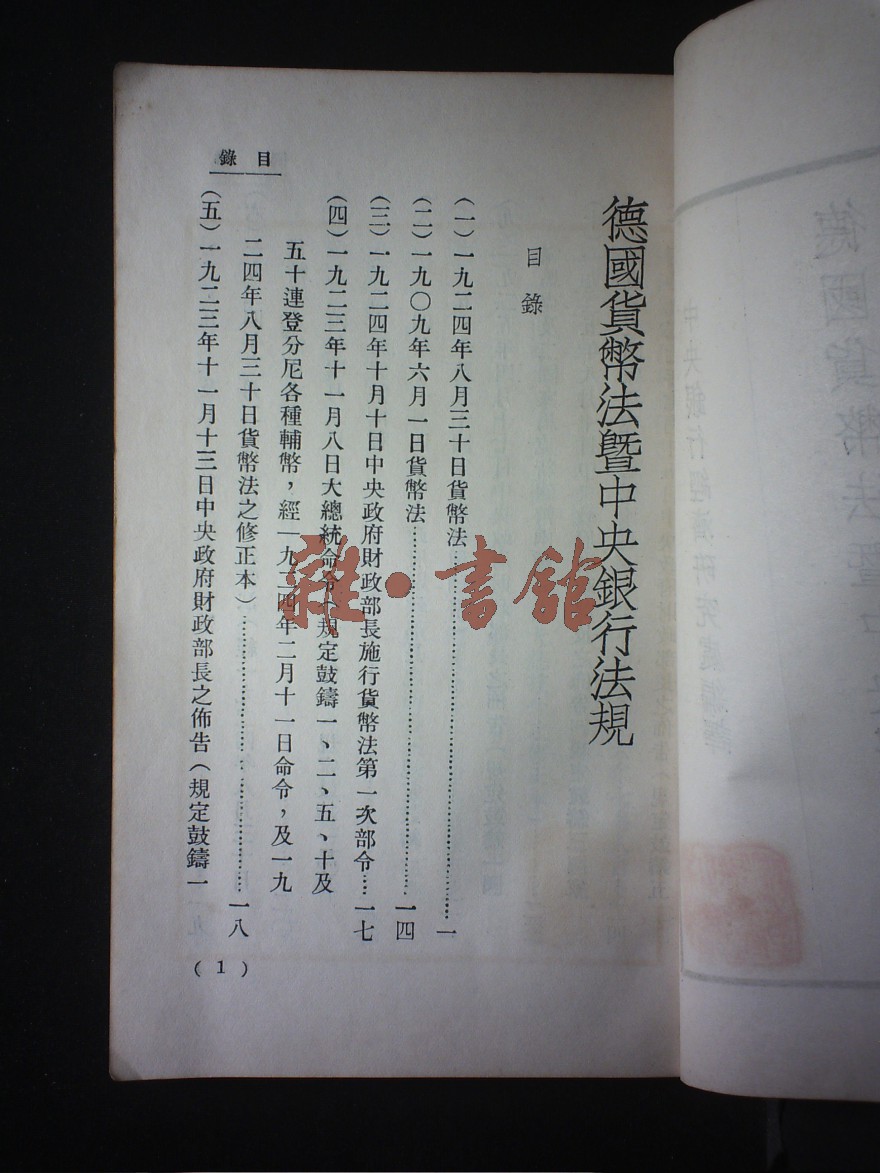 德國貨幣法暨中央銀行法規
目錄
（一）一九二四年八月三十日貨幣法……一
（二）一九〇九年六月一日貨幣法……一四
（三）一九二四年十月十日中央政府財政部長施行貨幣法第一次部令……一七
（四）一九二三年十一月八日大總統命令（規定鼓鑄一、二、五、十及
五十連登分尼各種輔幣，經一九二四年二月十一日命令，及一九
二四年八月三十日貨幣法之修正本）……一八
（五）一九二三年十一月十三日中央政府財政部長之佈告（規定鼓鑄一
目錄
（1）
雜·書館